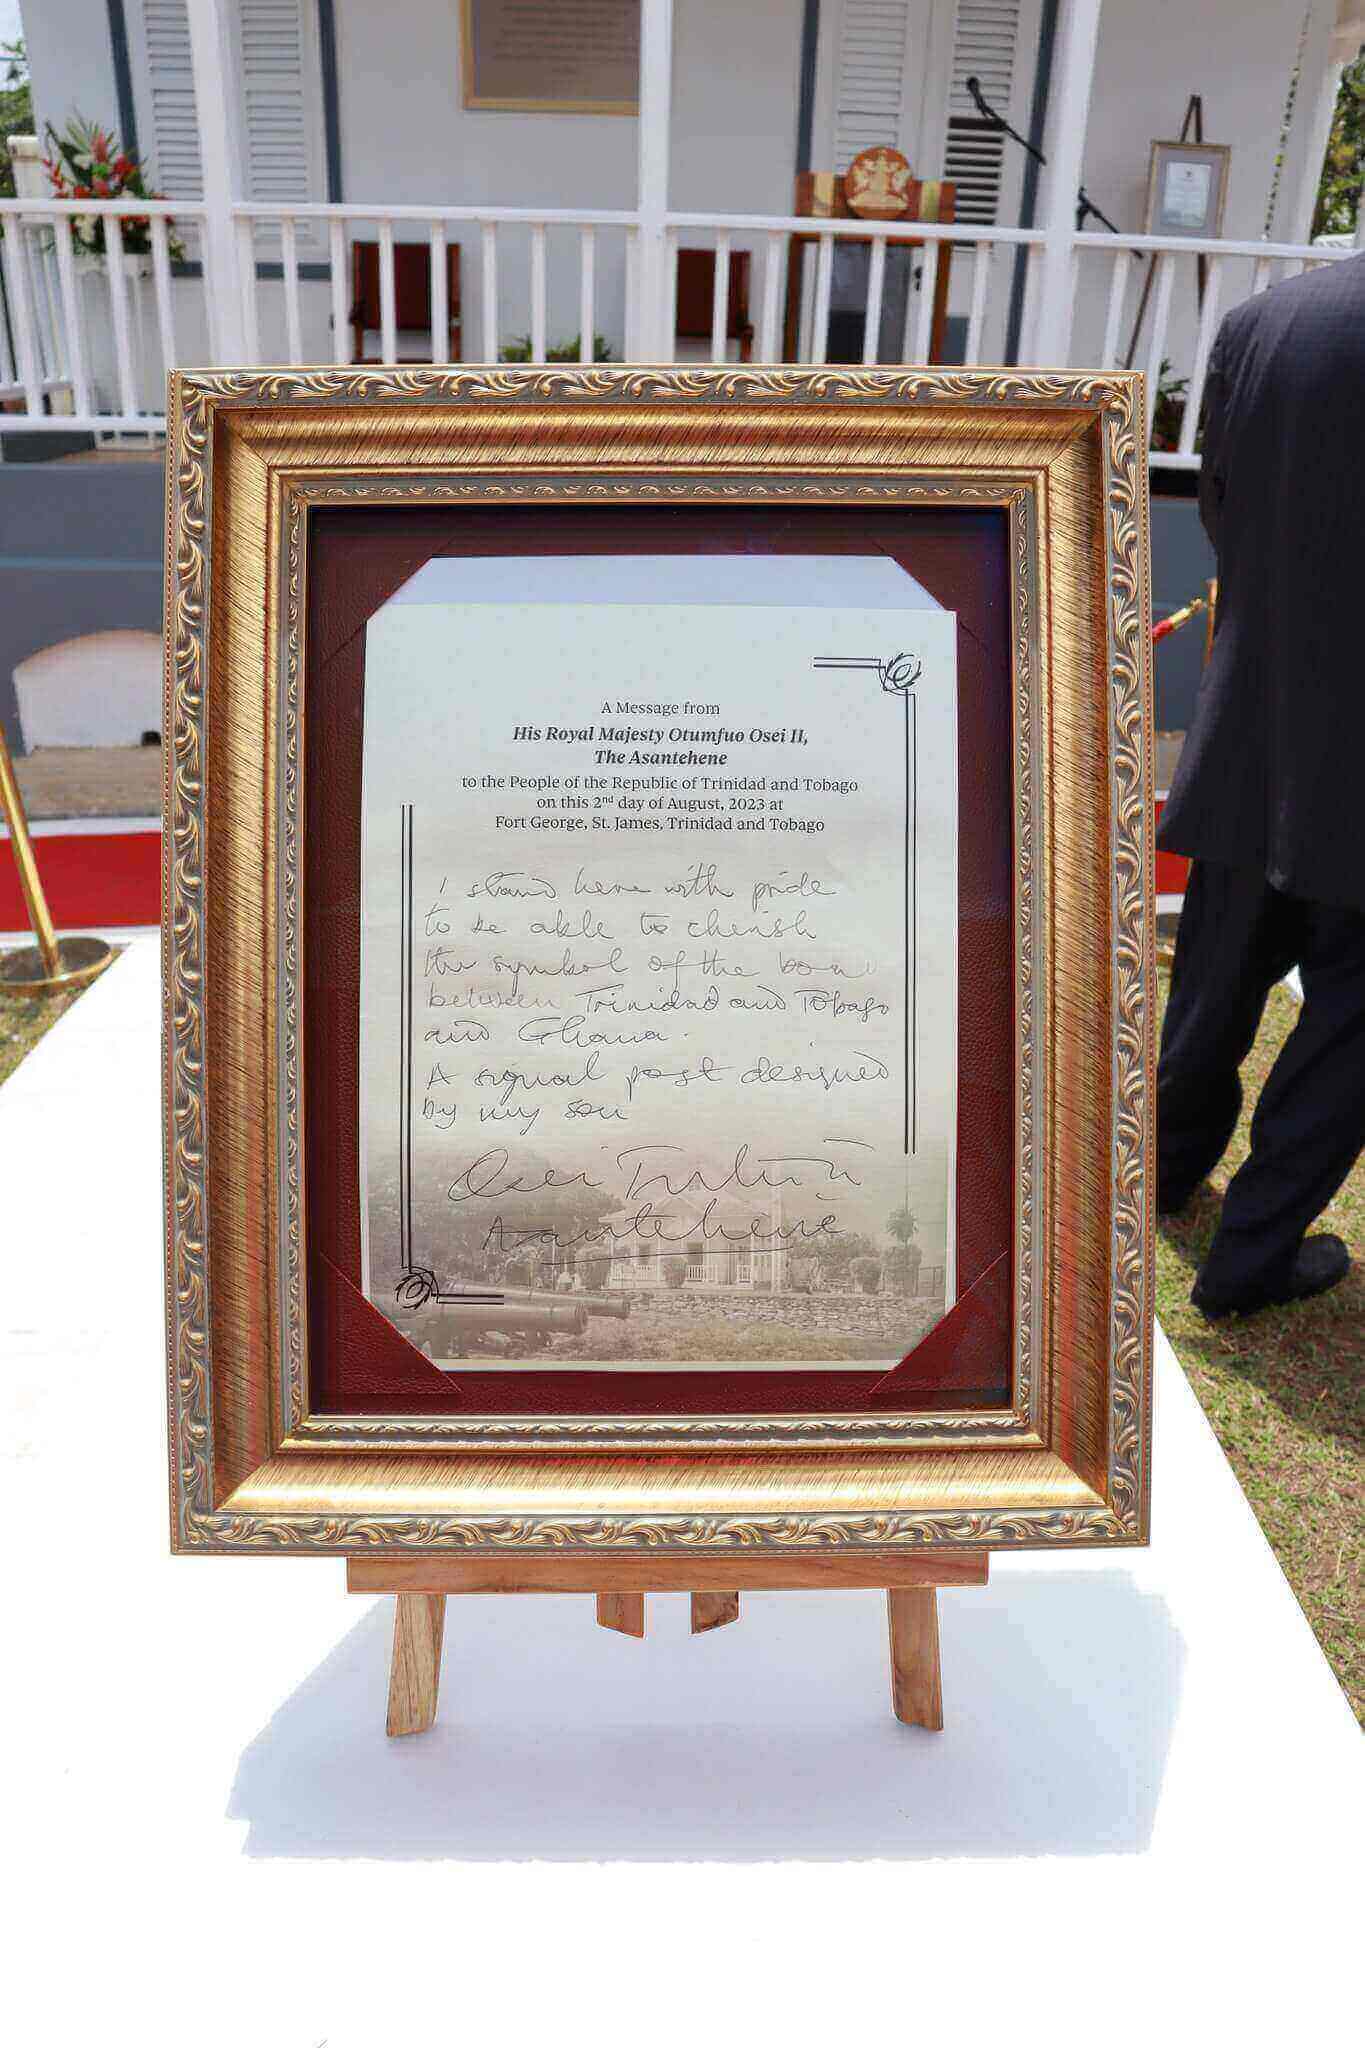 A Message from
His Royal Majesty Otumfuo Osei II,
The Asantehene
to the People of the Republic of Trinidad and Tobago
on this 2nd day of August, 2023 at
Fort George, St. James, Trinidad and Tobago
I stand here with pride
to be able to cherish
the symbol of the
between Trinidad and Tobago
and Ghana.
A signal post designed
by my son
Osei Tutu II
Asantehene